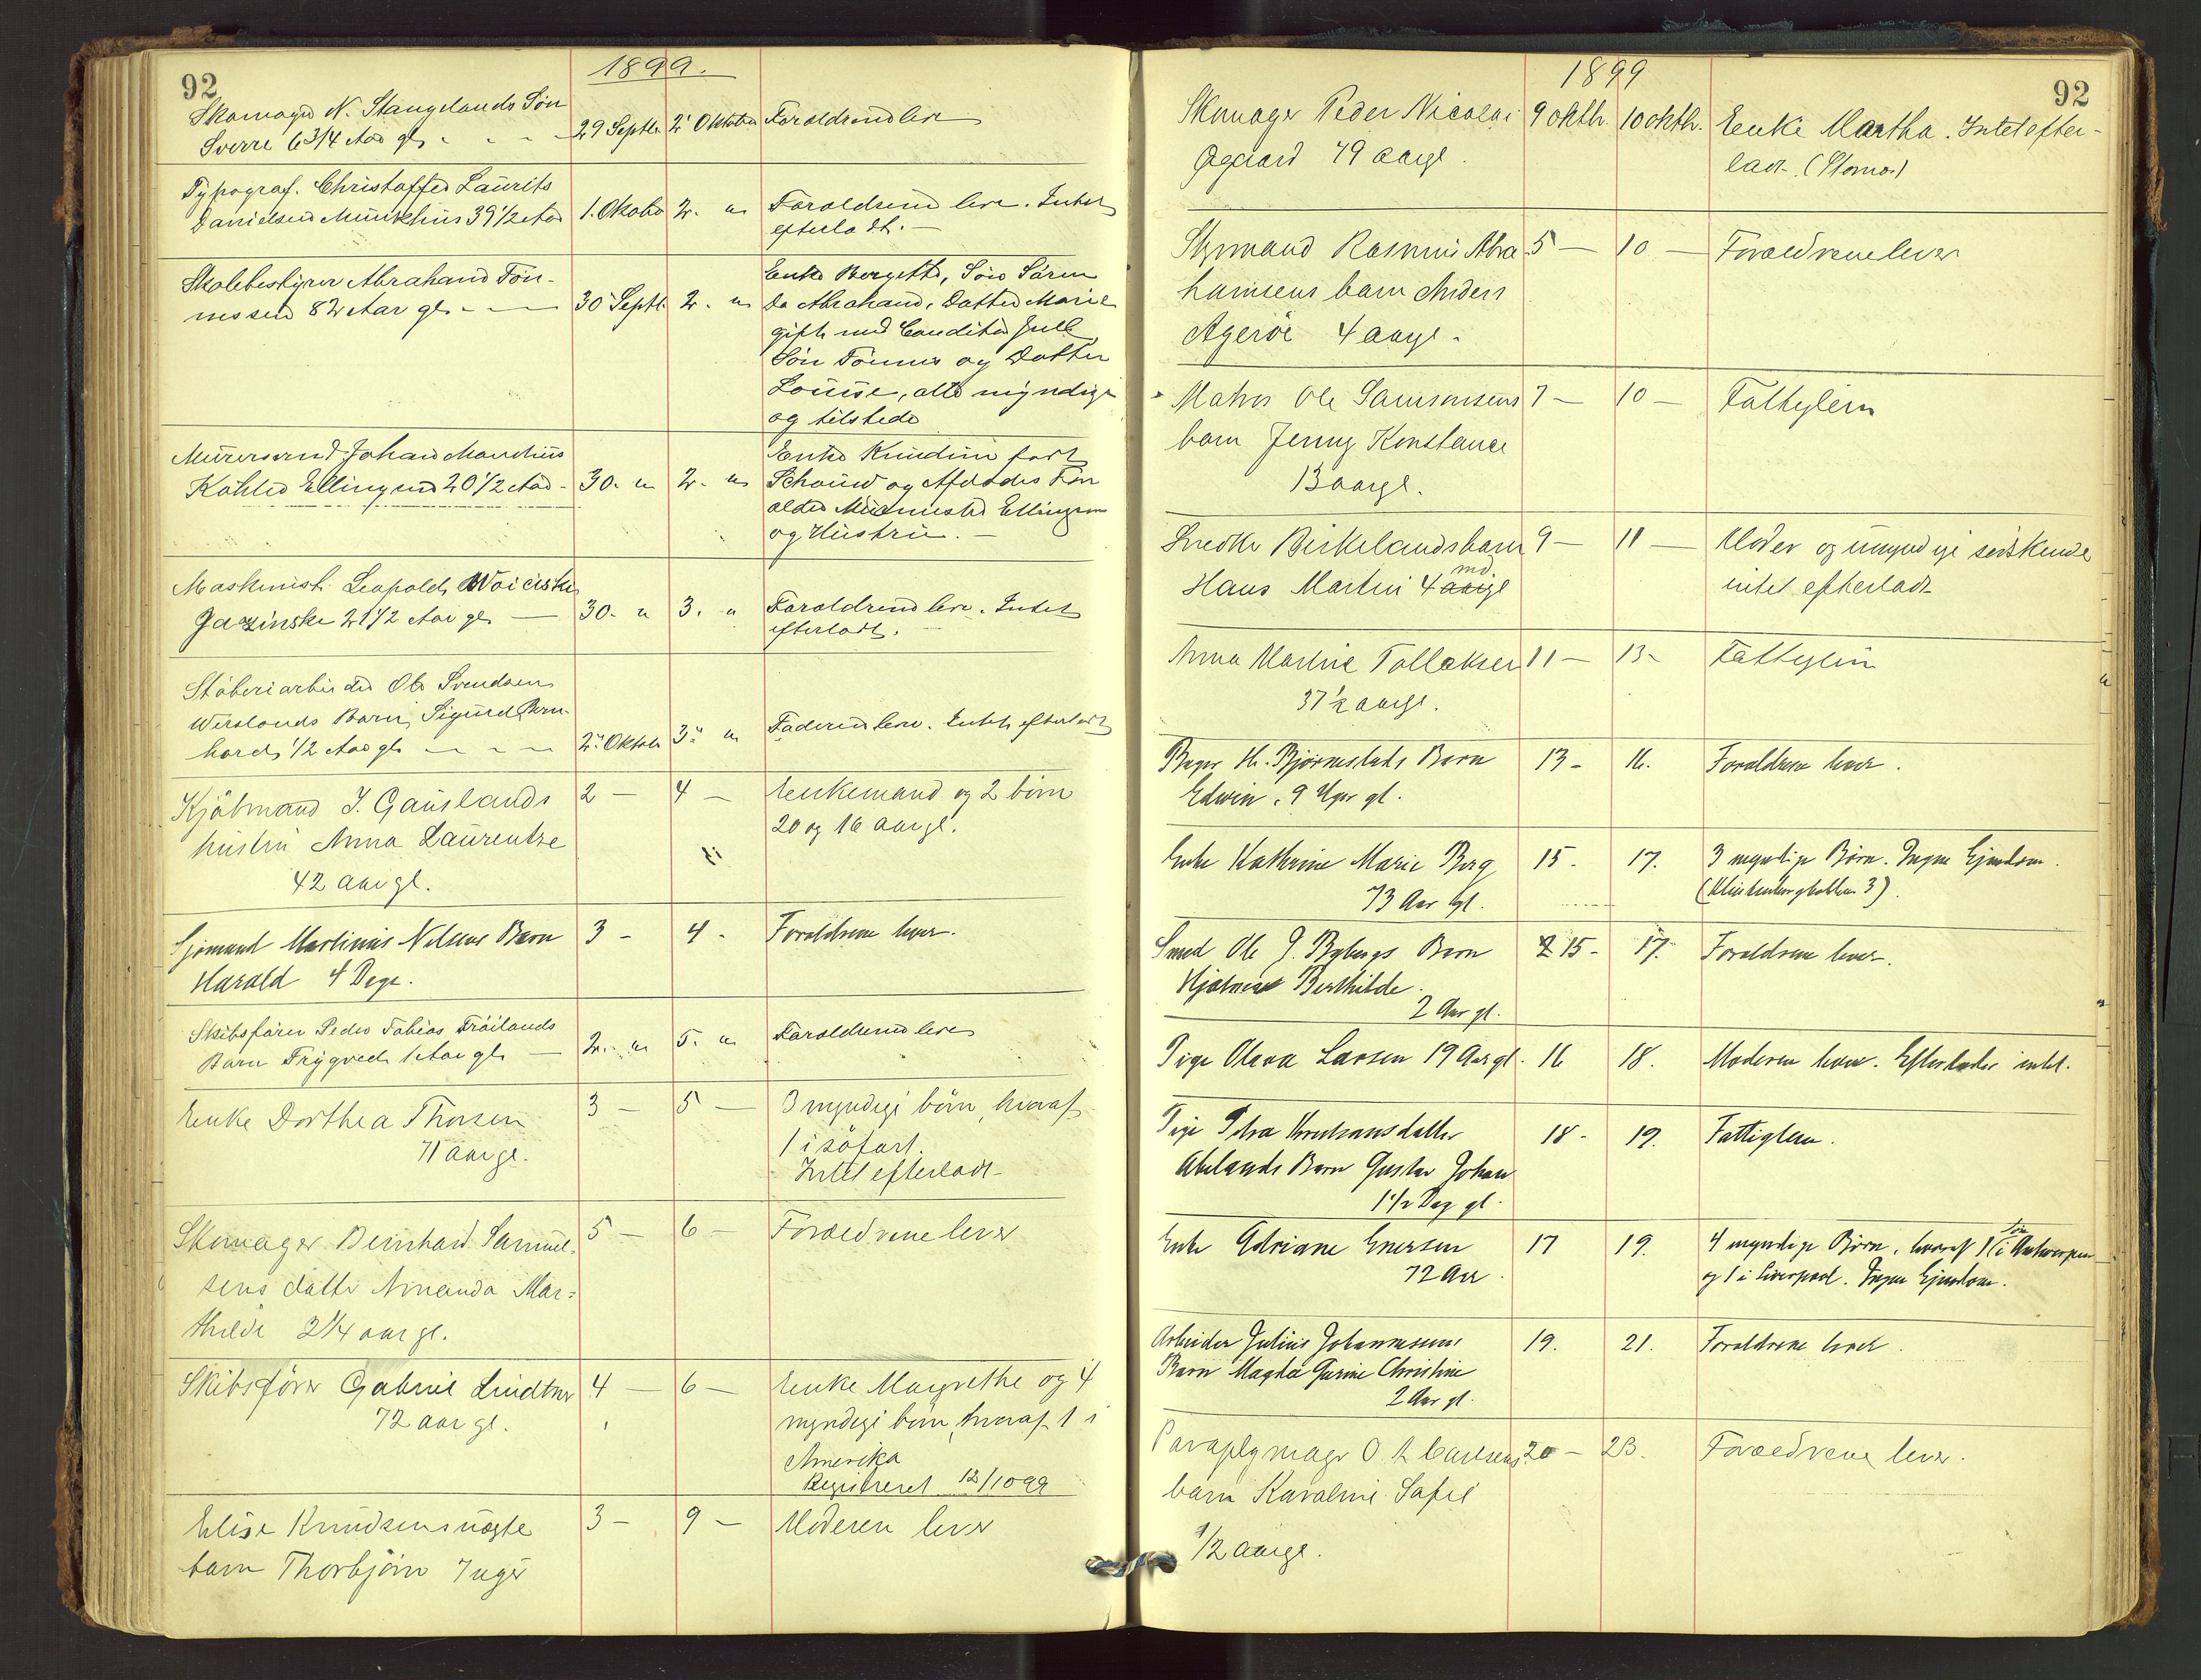 92
1899.
Skomager N. Stangelands Søn
Sverre 6 3/4 Aar gl. - - -
29 Septbr
2' Oktober
Foraldrene lever
Typograf. Christoffer Laurits
Danielsen Münthius 39 1/2 Aar
1. Oktober
2. "
Foraldrene lever. Intet
efterladt. -
Skolebestyrer Abraham Tön-
nessen 82 Aar gl. - -
30 Septbr
2. "
Enke Bergette, Søn Sören
Do Abraham, Datter Marie
gift med Conditor Jull
Søn Tönnes og Datter
Louise, alle myndige
og tilstede
Murersvend Johan Mauritius
Köhler Ellingsen 20 1/2 Aar -
30. "
2. "
Enke Knudine født
Schouw og Afdødes For
ældre Murmester Ellingsen
og Hustru. -
Maskinist Leopold Woiciski
Jazinske 21 1/2 Aar gl. -
30. "
3. "
Foraldrene lever. Intet
efterladt.
Støberiarbeider Ole Svendsen
Werslands Barn Sigurd Bern-
hard, 1/2 Aar gl. - - -
2" Oktobr
3" "
Faderen lever. Intet efterladt
Kjøbmand J. Gauslands
hustru Anna Laurentze
42 aar gl.
2 -
4 -
Enkemand og 2 børn
20 og 16 aar gl.
Sjømand Martinius Nilsens Barn
Harald 4 Dage.
3 -
4 -
Foraldrene lever.
Skibsfører Peder Tobias Tröilands
Barn Trygve 1 Aar gl. -
2. "
5. "
Foraldrene lever
Enke Dorthea Thorsen
71 aar gl.
3 -
5 -
3 myndige børn, hvoraf
1 i søfart.
Intet efterladt -
Skomager Bernhard Samuel-
sens datter Amanda Mar=
thilde 2 1/4 aar gl.
5 -
6 -
Forældrene lever
Skibsfører Gabriel Lindtner
72 aar gl.
4 -
6 -
Enke Margrethe og 4
myndige børn, hvoraf 1 i
Amerika
Registreret 12/10 99
Elise Knudsens uægte
barn Thorbjørn 7 uger
3 -
9 -
Moderen lever
1899
92
Skomager Peder Nicolai
Øgaard 49 aar gl.
9 oktb.
10 oktb.
Enke Martha. Intet efter-
ladt.
Styrmand Rasmus Abra-
hamsens barn Anders
Agerøe 4 aar gl.
5 -
10 -
Forældrene lever
Matros Ole Samsonsens
barn Jenny Konstance
13 aar gl.
7 -
10 -
Fattiglem
Snedker Birkelands barn
md
Hans Martin 4 aar gl
9 -
11 -
Moder og umyndige sødskende
intet efterladt
Anna Martine Tollaksen
37 1/2 aar gl.
11 -
13 -
Fattiglem
Bager H. Bjørnestads Barn
Edwin, 9 Uger gl.
13 -
16.
Foraldrene lever.
Enke Kathrine Marie Berg
73 Aar gl.
15 -
17.
3 myndige Børn. Ingen Ejendom.
Smed Ole J. Bybergs Barn
Berthilde.
2 Aar gl.
15 -
17.
Foraldrene lever.
Pige Olava Larsen 19 Aar gl.
16
18.
Moderen lever. Efterlader intet.
Pige Petra
Abelands Barn Gustav Johan
1 1/2 Dag gl.
18 -
19.
Fattiglem.
Enke Adriane Enersen
72 Aar.
17
19.
4 myndige Børn, hvoraf 1 i Antwerpen
og 1 i Liverpool. Ingen Ejendom.
Arbeider Julius Johannesens
Barn Magda Gurine Christine
2 Aar gl.
19.
21.
Foraldrene lever.
Paraplymager O. A. Carlsens
barn Karoline Sofie
1/2 aar gl.
20 -
23.
Forældrene lever.